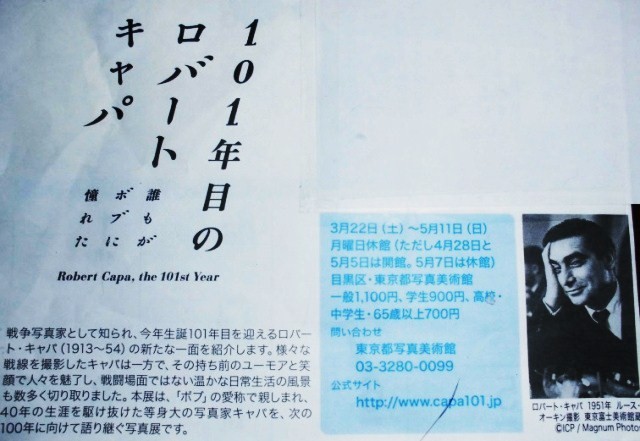 101年目の
ロバート
キャパ
誰もが
ボブに
憧れた
Robert Capa, the 101st Year
戦争写真家として知られ、今年生誕101年目を迎えるロバー
ト・キャパ（1913～54）の新たな一面を紹介します。様々な
戦線を撮影したキャパは一方で、その持ち前のユーモアと笑
顔で人々を魅了し、戦闘場面ではない温かな日常生活の風景
も数多く切り取りました。本展は、「ボブ」の愛称で親しまれ、
40年の生涯を駆け抜けた等身大の写真家キャパを、次の
100年に向けて語り継ぐ写真展です。
3月22日（土）～5月11日（日）
月曜日休館（ただし4月28日と
5月5日は開館。5月7日は休館）
目黒区・東京都写真美術館
一般1,100円、学生900円、高校・
中学生・65歳以上700円
問い合わせ
東京都写真美術館
03-3280-0099
公式サイト
http://www.capa101.jp
ロバート・キャパ 1951年 ルース・
オーキン撮影 東京富士美術館蔵
©ICP / Magnum Photo